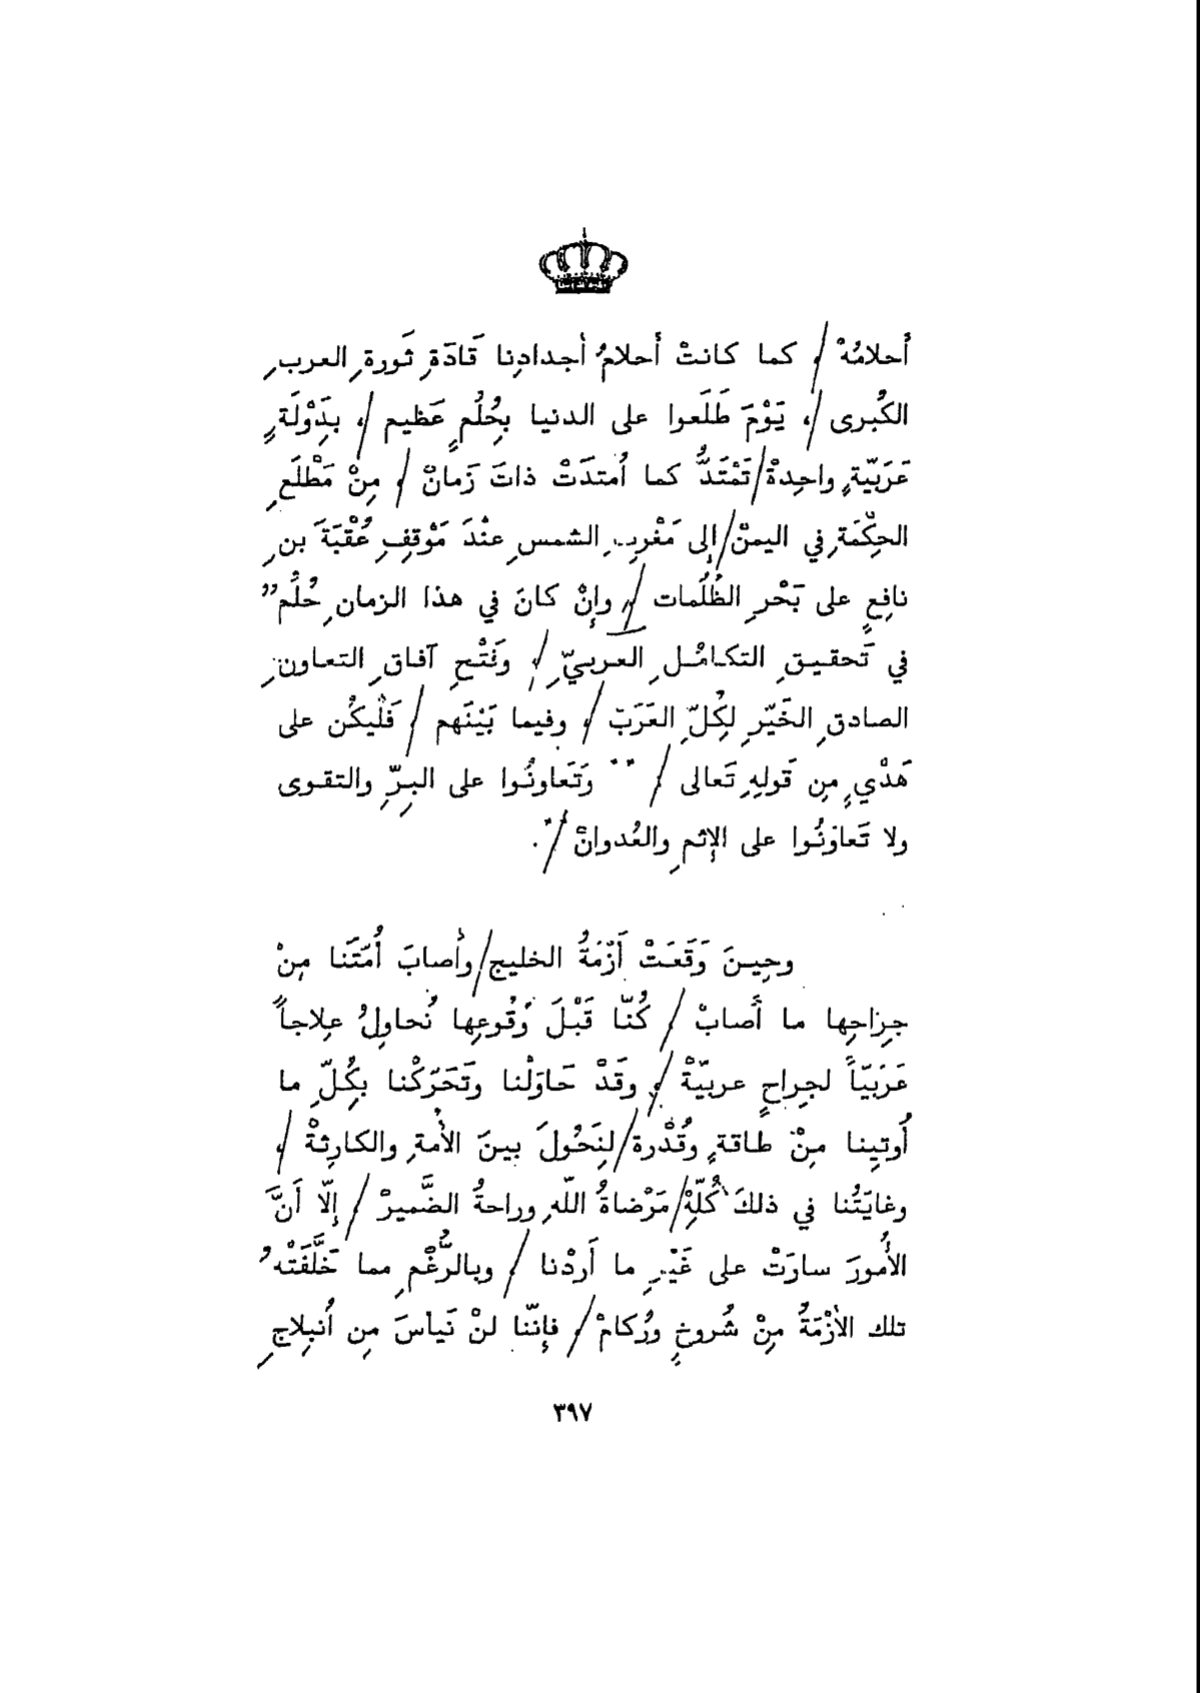 أَحلامُهْ / ، كما كانتْ أَحلامُ أجدادِنا قَادَةِ ثَورةِ العربِ
الكُبرى / ، يَوْمَ طَلَعوا على الدنيا بِحُلُمٍ عَظيم / ، بِدَوْلَةٍ
عَرَبيّةٍ واحِدةْ / تَمْتَدُّ كما اُمتدَتْ ذاتَ زَمانْ / ، مِنْ مَطْلَعِ
الحِكْمَةِ في اليمنْ / إلى مَغْرِبِ الشمسِ عنْدَ مَوْقِفِ عُقْبَةَ بنِ
نافِعٍ على بَحْرِ الظُلُمات / ، وإنْ كانَ في هذا الزمانِ حُلُم"
في تَحقيقِ التكامُلِ العربيّ / ، وَفَتْحِ آفاقِ التعاونِ
الصادقِ الخَيّرِ لِكُلّ العَرَبْ / ، وفيما بَيْنَهم / فَلْيكُن على
هَدْيٍ مِن قَولِهِ تَعالى / " وَتَعاونُوا على البِرِّ والتقوى
ولا تَعاوَنُوا على الإثمِ والعُدوانْ / " .
وحِينَ وَقَعَتْ أَزْمَةُ الخليج / وأَصابَ أُمّتَنا مِنْ
جِراحِها ما أَصابْ / كُنّا قَبْلَ وُقُوعِها نُحاوِلُ عِلاجاً
عَرَبَيّاً لجِراحٍ عربيّةْ / ، وقَدْ حَاوَلْنا وتَحَرّكْنا بِكُلّ ما
أُوتِينا مِنْ طاقةٍ وقُدْرة / لِنَحُولَ بينَ الأُمةِ والكارِثةْ / ،
وغايَتُنا في ذلكَ كُلّهِ / مَرْضاةُ اللّه وراحةُ الضَّميرْ / إلّا أَنَّ
الأُمورَ سارَتْ على غَيْرِ ما أَردْنا / وبالرَّغْمِ مما خَلَّفَتْهُ
تلك الأزْمَةُ مِنْ شُروخٍ ورُكامْ / فإنّنا لنْ نَيأسَ مِن اُنبِلاجِ
٣٩٧